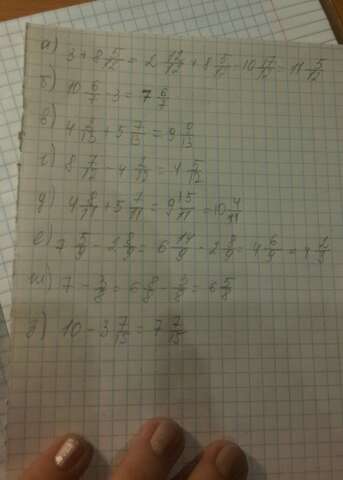 а) 3 + 8 5/12 = 2 12/12 + 8 5/12 = 10 17/12 = 11 5/12
б) 10 6/7 - 3 = 7 6/7
в) 4 2/13 + 5 7/13 = 9 9/13
г) 8 7/12 - 4 2/12 = 4 5/12
д) 4 8/11 + 5 7/11 = 9 15/11 = 10 4/11
е) 7 5/9 - 2 8/9 = 6 14/9 - 2 8/9 = 4 6/9 = 4 2/3
ж) 7 - 3/8 = 6 8/8 - 3/8 = 6 5/8
з) 10 - 3 7/15 = 7 7/15